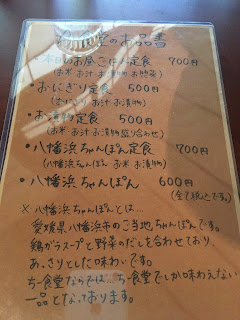 食堂のお品書
・本日のお昼ごはん定食 700円
(お米 お汁 お漬物 お惣菜)
・おにぎり定食 500円
(おにぎり お汁 お漬物)
・お漬物定食 500円
(お米 お汁 お漬物盛り合わせ)
・八幡浜ちゃんぽん定食 700円
(八幡浜ちゃんぽん お米 お漬物)
・八幡浜ちゃんぽん 600円
(全て税込です。)
※八幡浜ちゃんぽんとは…
愛媛県八幡浜市のご当地ちゃんぽんです。
鶏ガラスープと野菜のだしを合わせており、
あっさりとした味わいです。
ちー食堂ならでは、ちー食堂でしか味わえない
一品となっております。